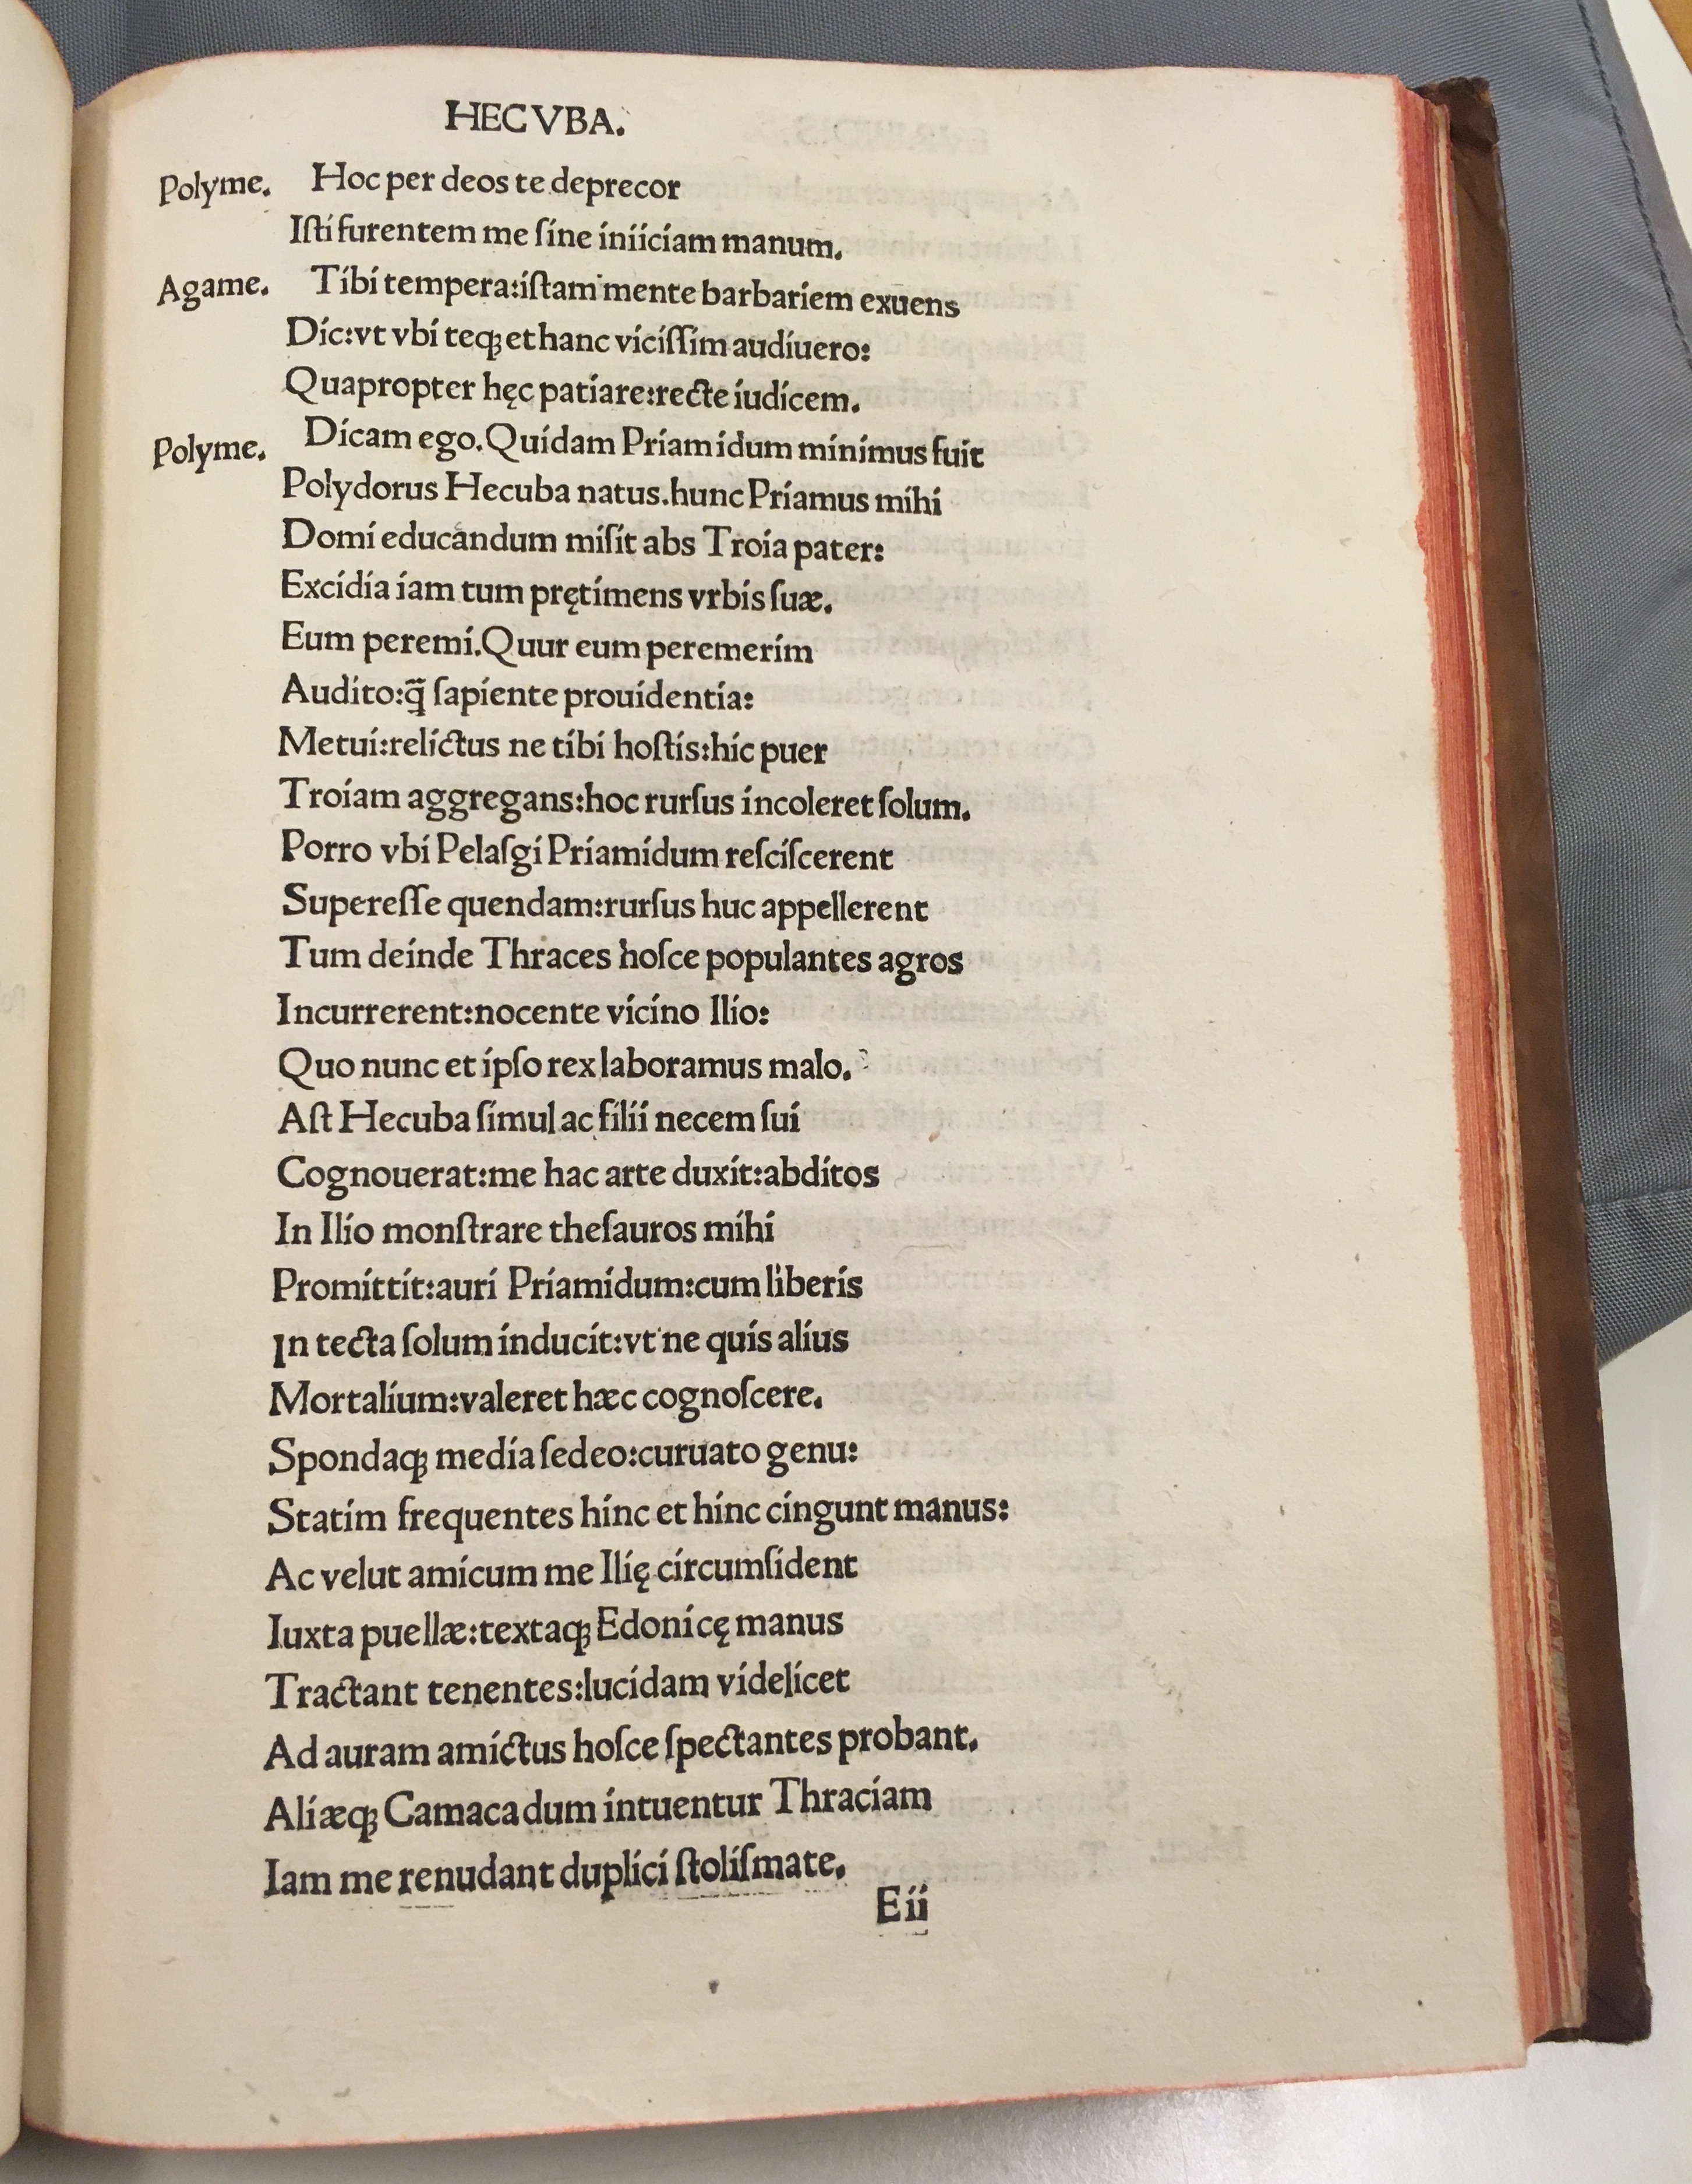 HECVBA.
Polyme. Hoc per deos te deprecor
Iſti furentem me ſine iniiciam manum.
Agame. Tibi tempera:iſtam mente barbariem exuens
Dic:vt vbi teqꝫ et hanc viciſſim audiuero:
Quapropter hęc patiare:recte iudicem.
Polyme. Dicam ego.Quidam Priamidum minimus fuit
Polydorus Hecuba natus.hunc Priamus mihi
Domi educandum miſit abs Troia pater:
Excidia iam tum prętimens vrbis ſuæ.
Eum peremi.Quur eum peremerim
Audito:q̄̃ ſapiente prouidentia:
Metui:relictus ne tibi hoſtis:hic puer
Troiam aggregans:hoc rurſus incoleret ſolum.
Porro vbi Pelaſgi Priamidum reſciſcerent
Supereſſe quendam:rurſus huc appellerent
Tum deinde Thraces hoſce populantes agros
Incurrerent:nocente vicino Ilio:
Quo nunc et ipſo rex laboramus malo.
Aſt Hecuba ſimul ac filii necem ſui
Cognouerat:me hac arte duxit:abditos
In Ilio monſtrare theſauros mihi
Promittit:auri Priamidum:cum liberis
In tecta ſolum inducit:vt ne quis alius
Mortalium:valeret hæc cognoſcere.
Spondaqꝫ media ſedeo:curuato genu:
Statim frequentes hinc et hinc cingunt manus:
Ac velut amicum me Ilię circumſident
Iuxta puellæ:textaqꝫ Edonicę manus
Tractant tenentes:lucidam videlicet
Ad auram amictus hoſce ſpectantes probant.
Aliæqꝫ Camaca dum intuentur Thraciam
Iam me renudant duplici ſtoliſmate.
Eii